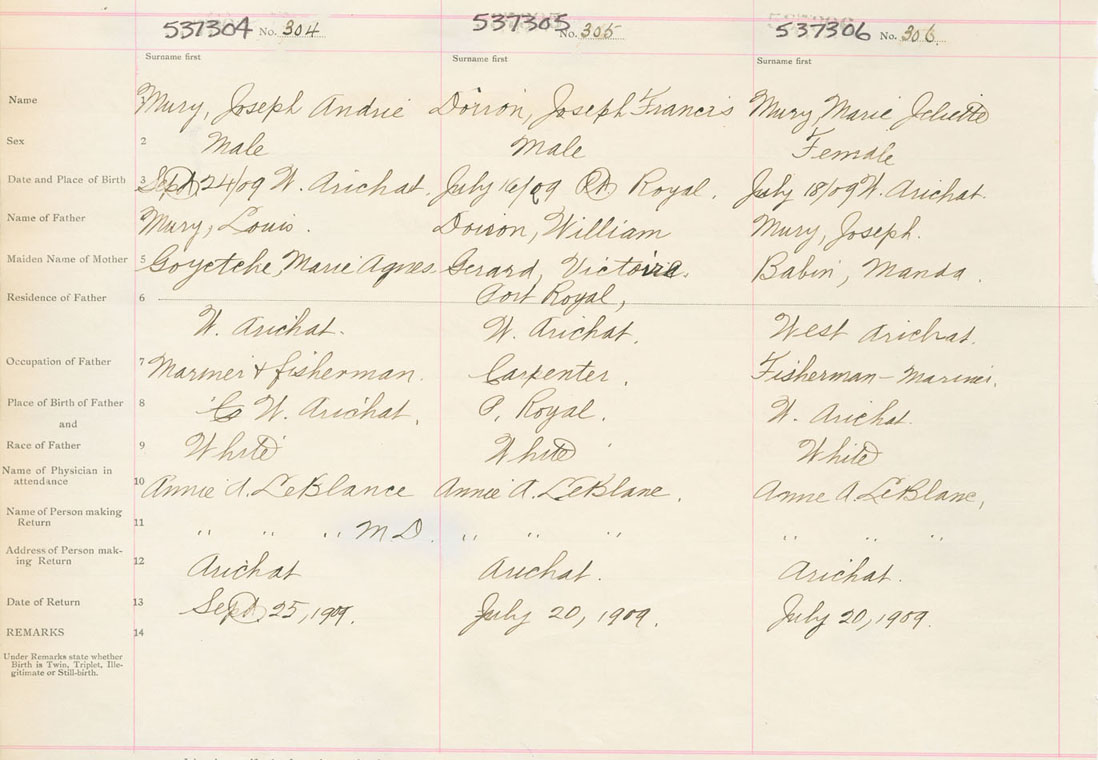 537304 No. 304 537305 No. 305 537306 No. 306
Surname first Surname first Surname first
Name Mury, Joseph Andrie Doiron, Joseph Francis Mury, Marie Jeliette
Sex 2 Male Male Female
Date and Place of Birth 3 Sept 24/09 W. Arichat. July 16/09 Pt Royal. July 18/09 W. Arichat.
Name of Father Mury, Louis. Doiron, William Mury, Joseph.
Maiden Name of Mother 5 Goyetche, Marie Agnes. Gerard, Victoire. Babin, Manda.
Residence of Father 6 Port Royal,
W. Arichat. W. Arichat. West Arichat.
Occupation of Father 7 Mariner & fisherman. Carpenter. Fisherman - Mariner.
Place of Birth of Father 8 W. Arichat. P. Royal. W. Arichat.
and
Race of Father 9 White White White
Name of Physician in
attendance 10 Annie A. LeBlance Annie A. LeBlanc. Anne A. LeBlanc,
Name of Person making
Return 11 " " " M D. " " " " " "
Address of Person mak-
ing Return 12 Arichat Arichat. Arichat.
Date of Return 13 Sept 25, 1909. July 20, 1909. July 20, 1909.
REMARKS 14
Under Remarks state whether
Birth is Twin, Triplet, Ille-
gitimate or Still-birth.